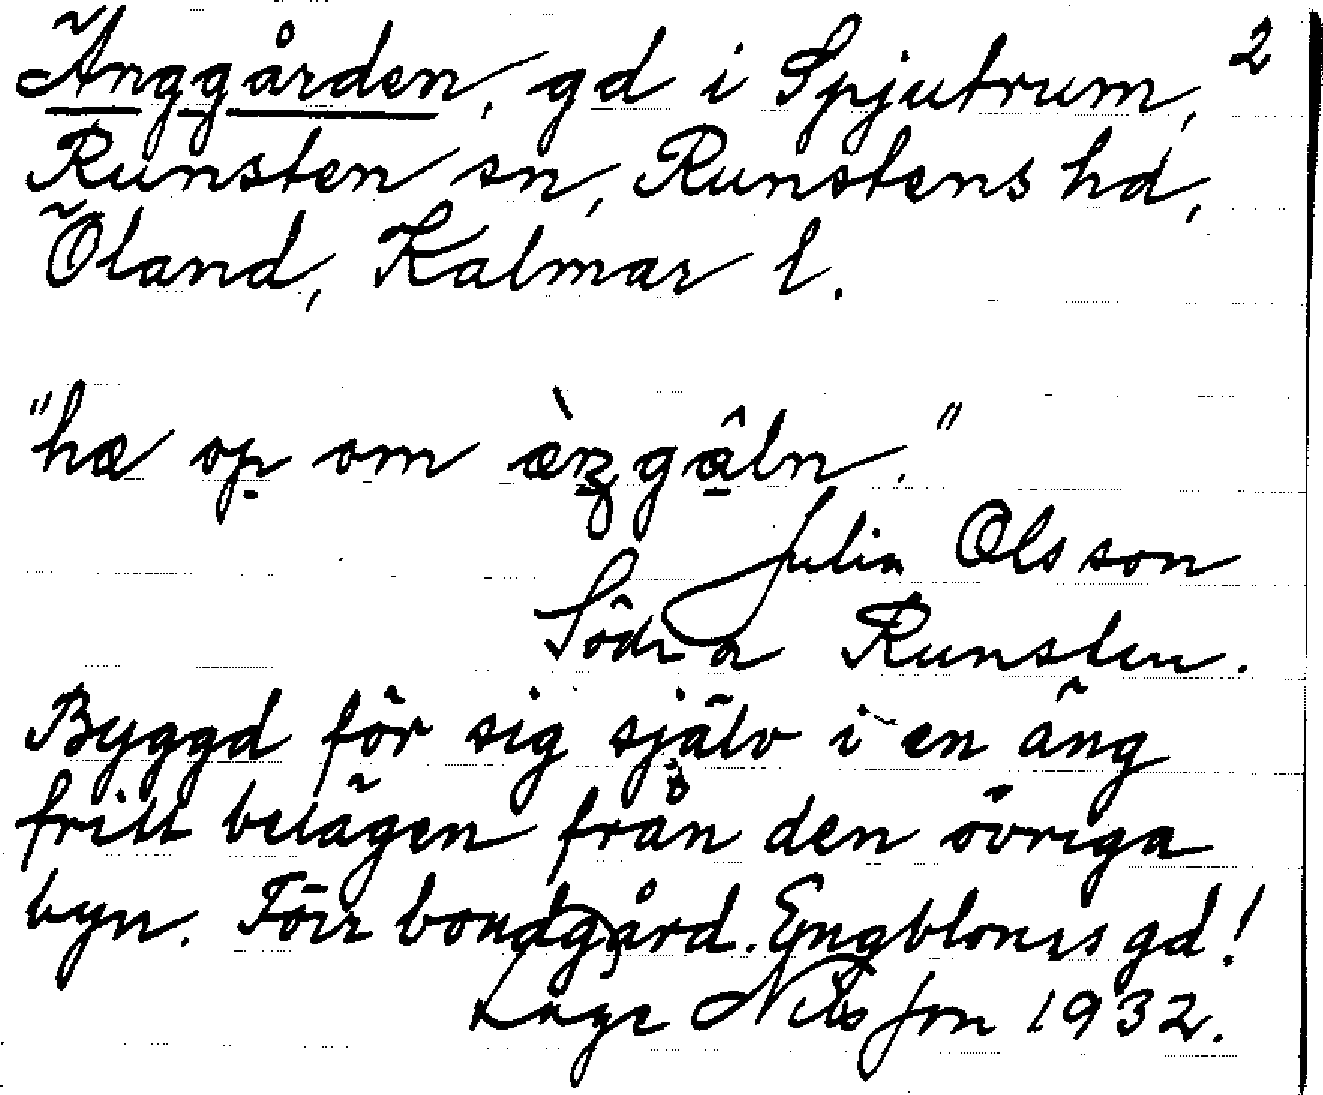 Änggården, gd i Spjutrum, 2
Runsten sn, Runstens hd,
Öland, Kalmar l.
"hæ op om gâln."
Julia Olsson
Södra Runsten.
Byggd för sig själv i en äng
fritt belägen från den övriga
byn. Förr bondgård. Engbloms gd!
Lage Nilsson 1932.